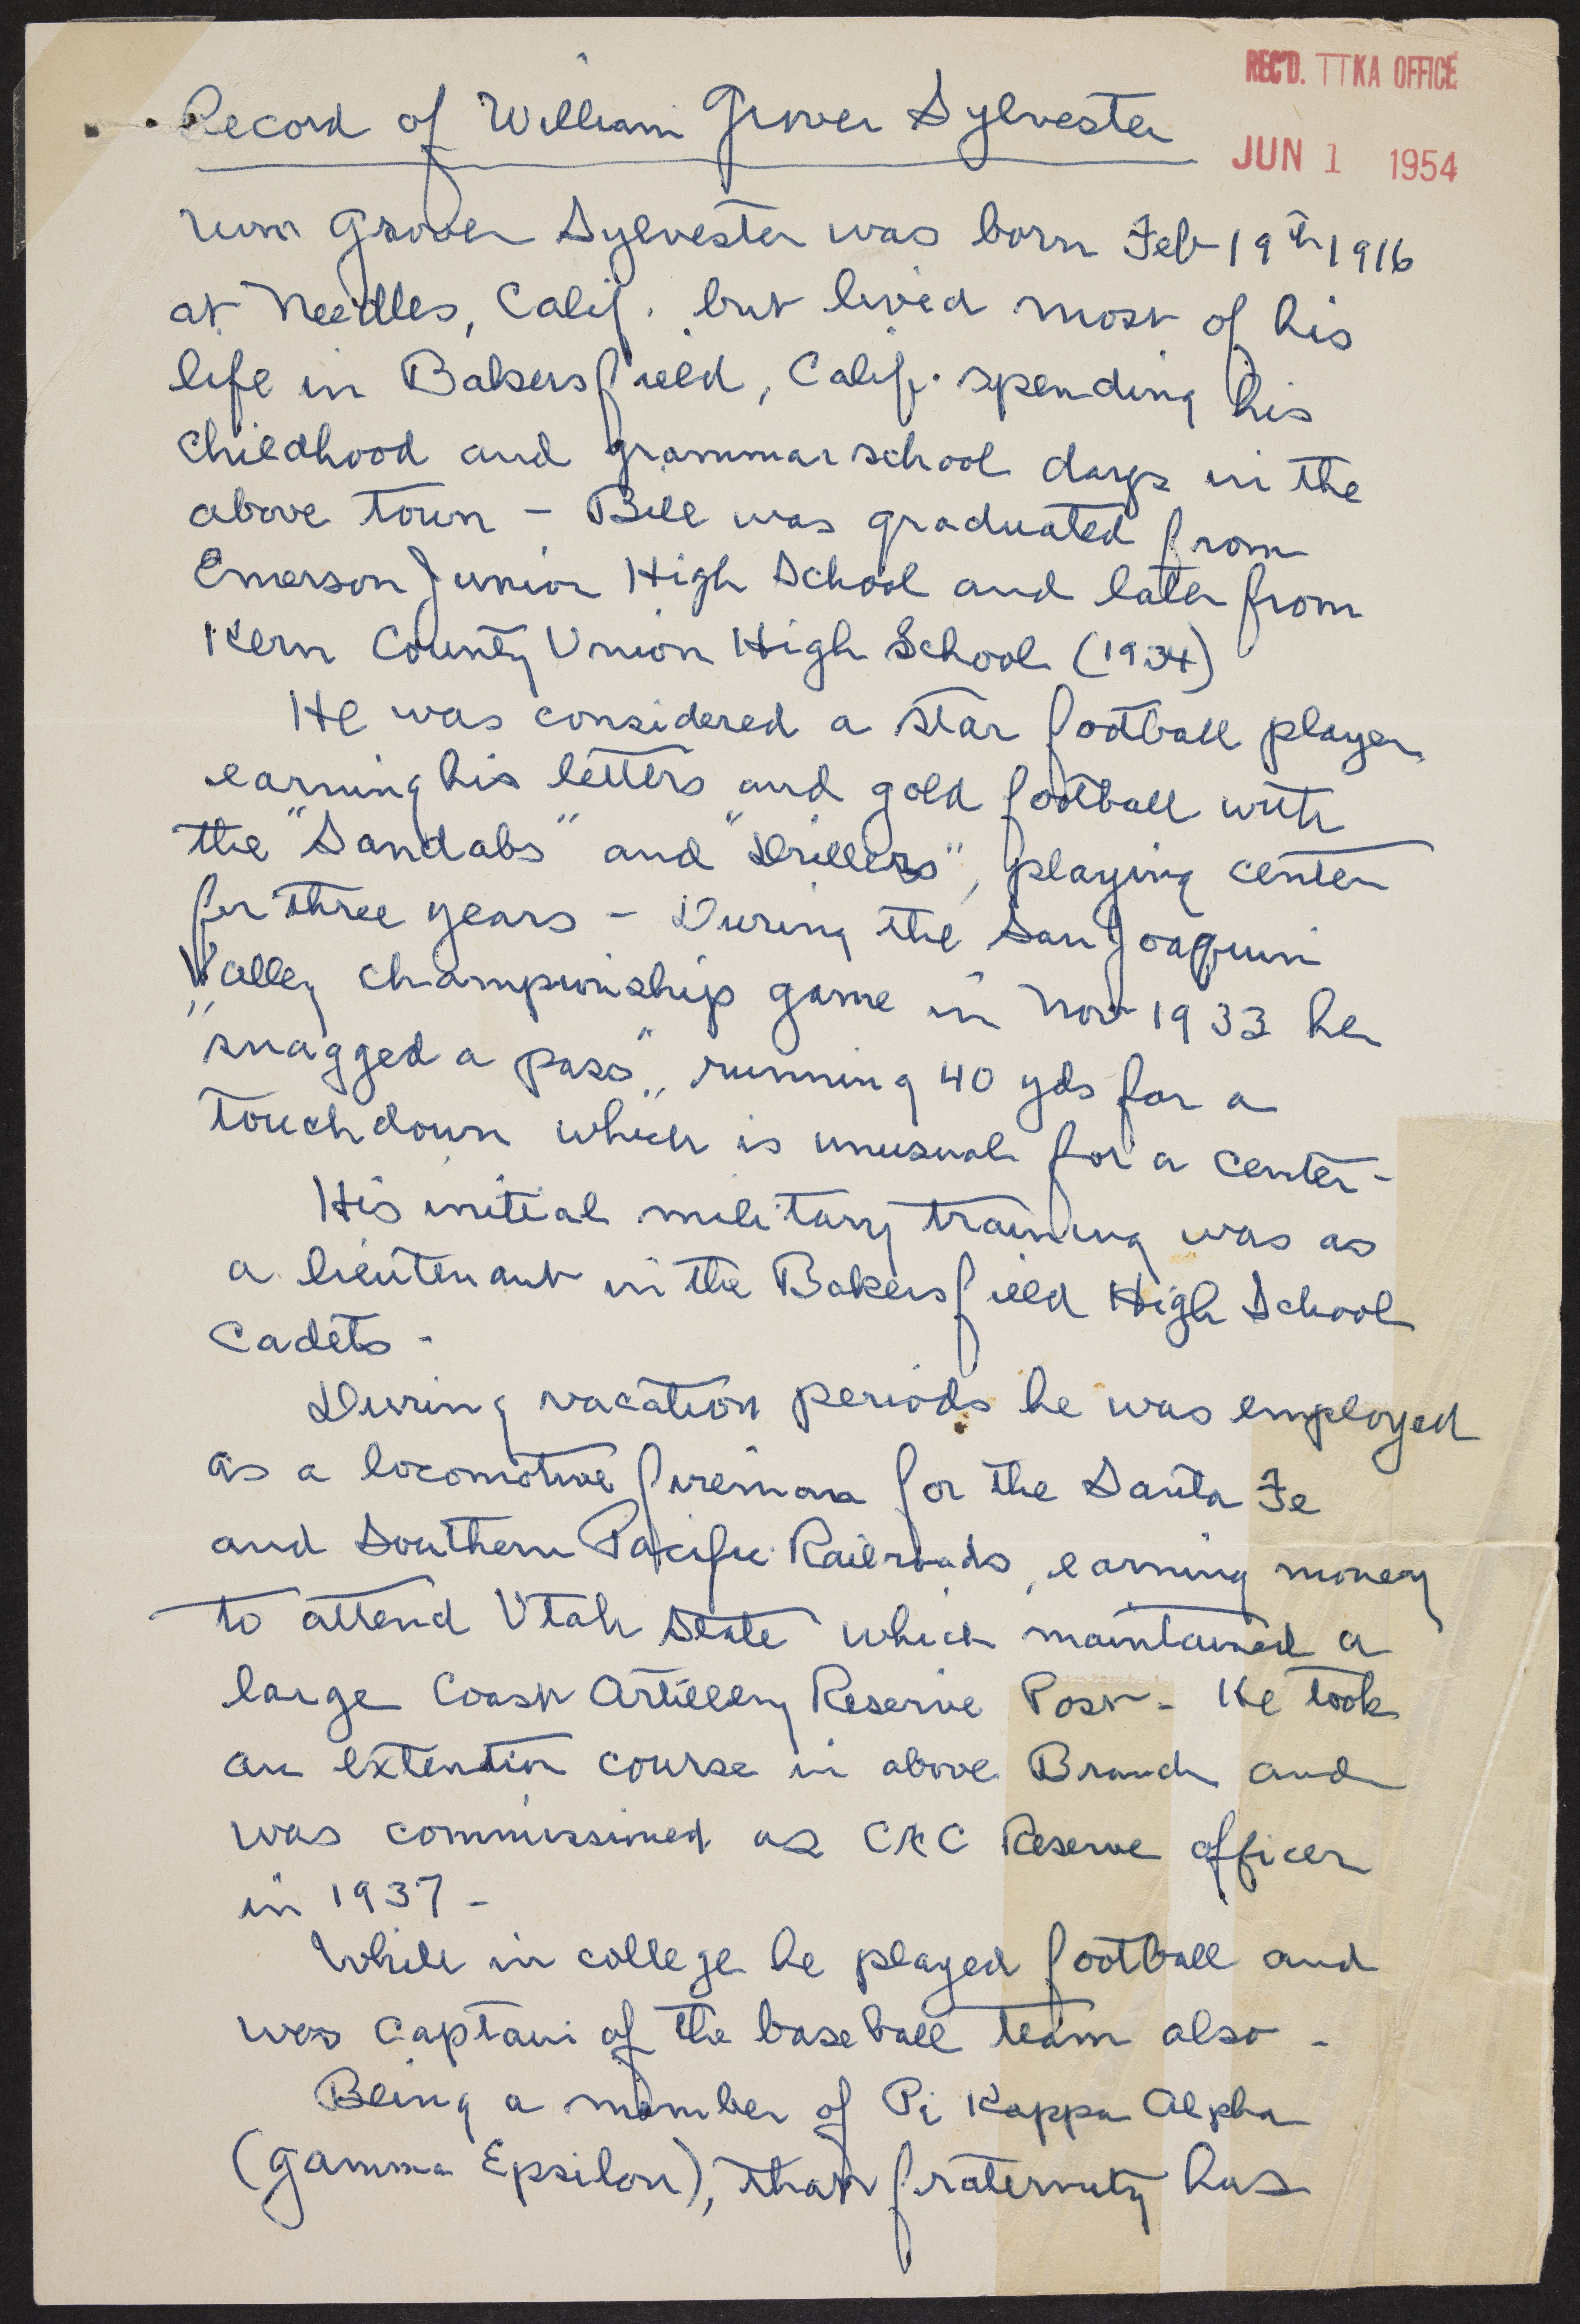 REC'D. ΠKA OFFICE
JUN 1 1954
Record of William Grover Sylvester
Wm Grover Sylvester was born Feb 19th 1916
at Needles, Calif. but lived most of his
life in Bakersfield, Calif. spending his
childhood and grammar school days in the
above town - Bill was graduated from
Emerson Junior High School and later from
Kern County Union High School (1934)
He was considered a star football player
earning his letters and gold football with
the "Sandabs" and "Drillers", playing center
for three years - During the San Joaquin
Valley championship game in Nov 1933 he
"snagged a pass", running 40 yds for a
touchdown which is unusual for a center -
His initial military training was as
a lieutenant in the Bakersfield High School
Cadets -
During vacation periods he was employed
as a locomotive fireman for the Santa Fe
and Southern Pacific Railroads, earning money
to attend Utah State which maintained a
large Coast Artillery Reserve Post - He took
an extention course in above Branch and
was commissioned as CAC Reserve officer
in 1937 -
While in college he played football and
was captain of the baseball team also -
Being a member of Pi Kappa Alpha
(Gamma Epsilon), that fraternity has